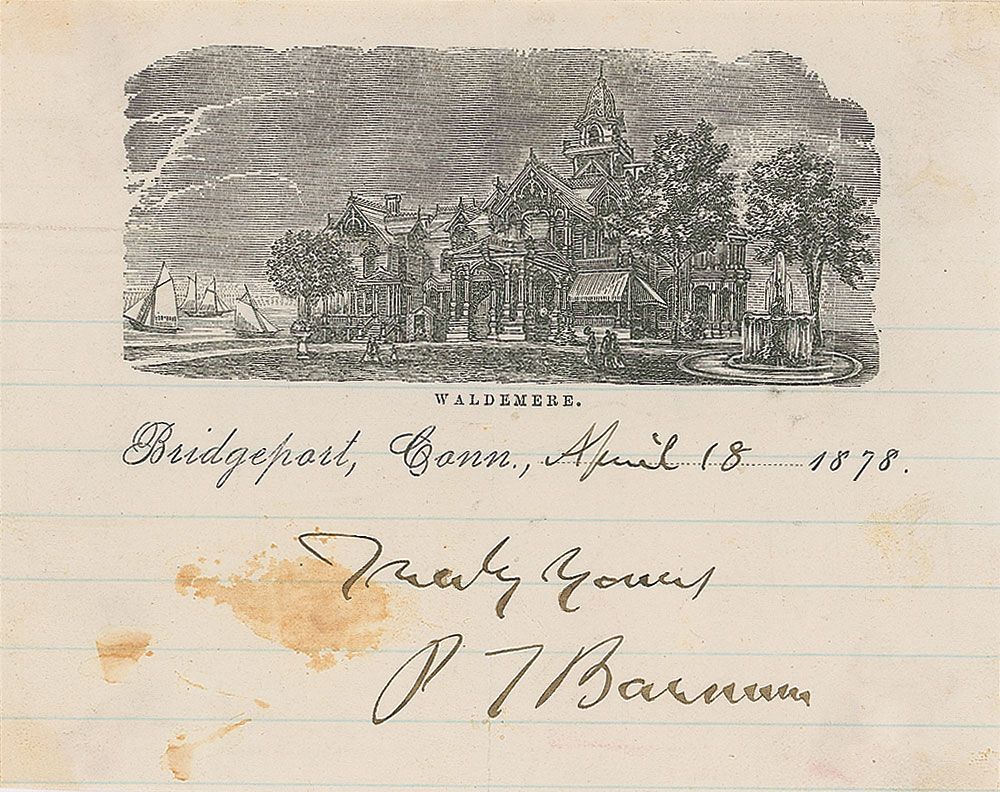 WALDEMERE.
Bridgeport, Conn., April 18 1878.
Truly Yours
P T Barnum